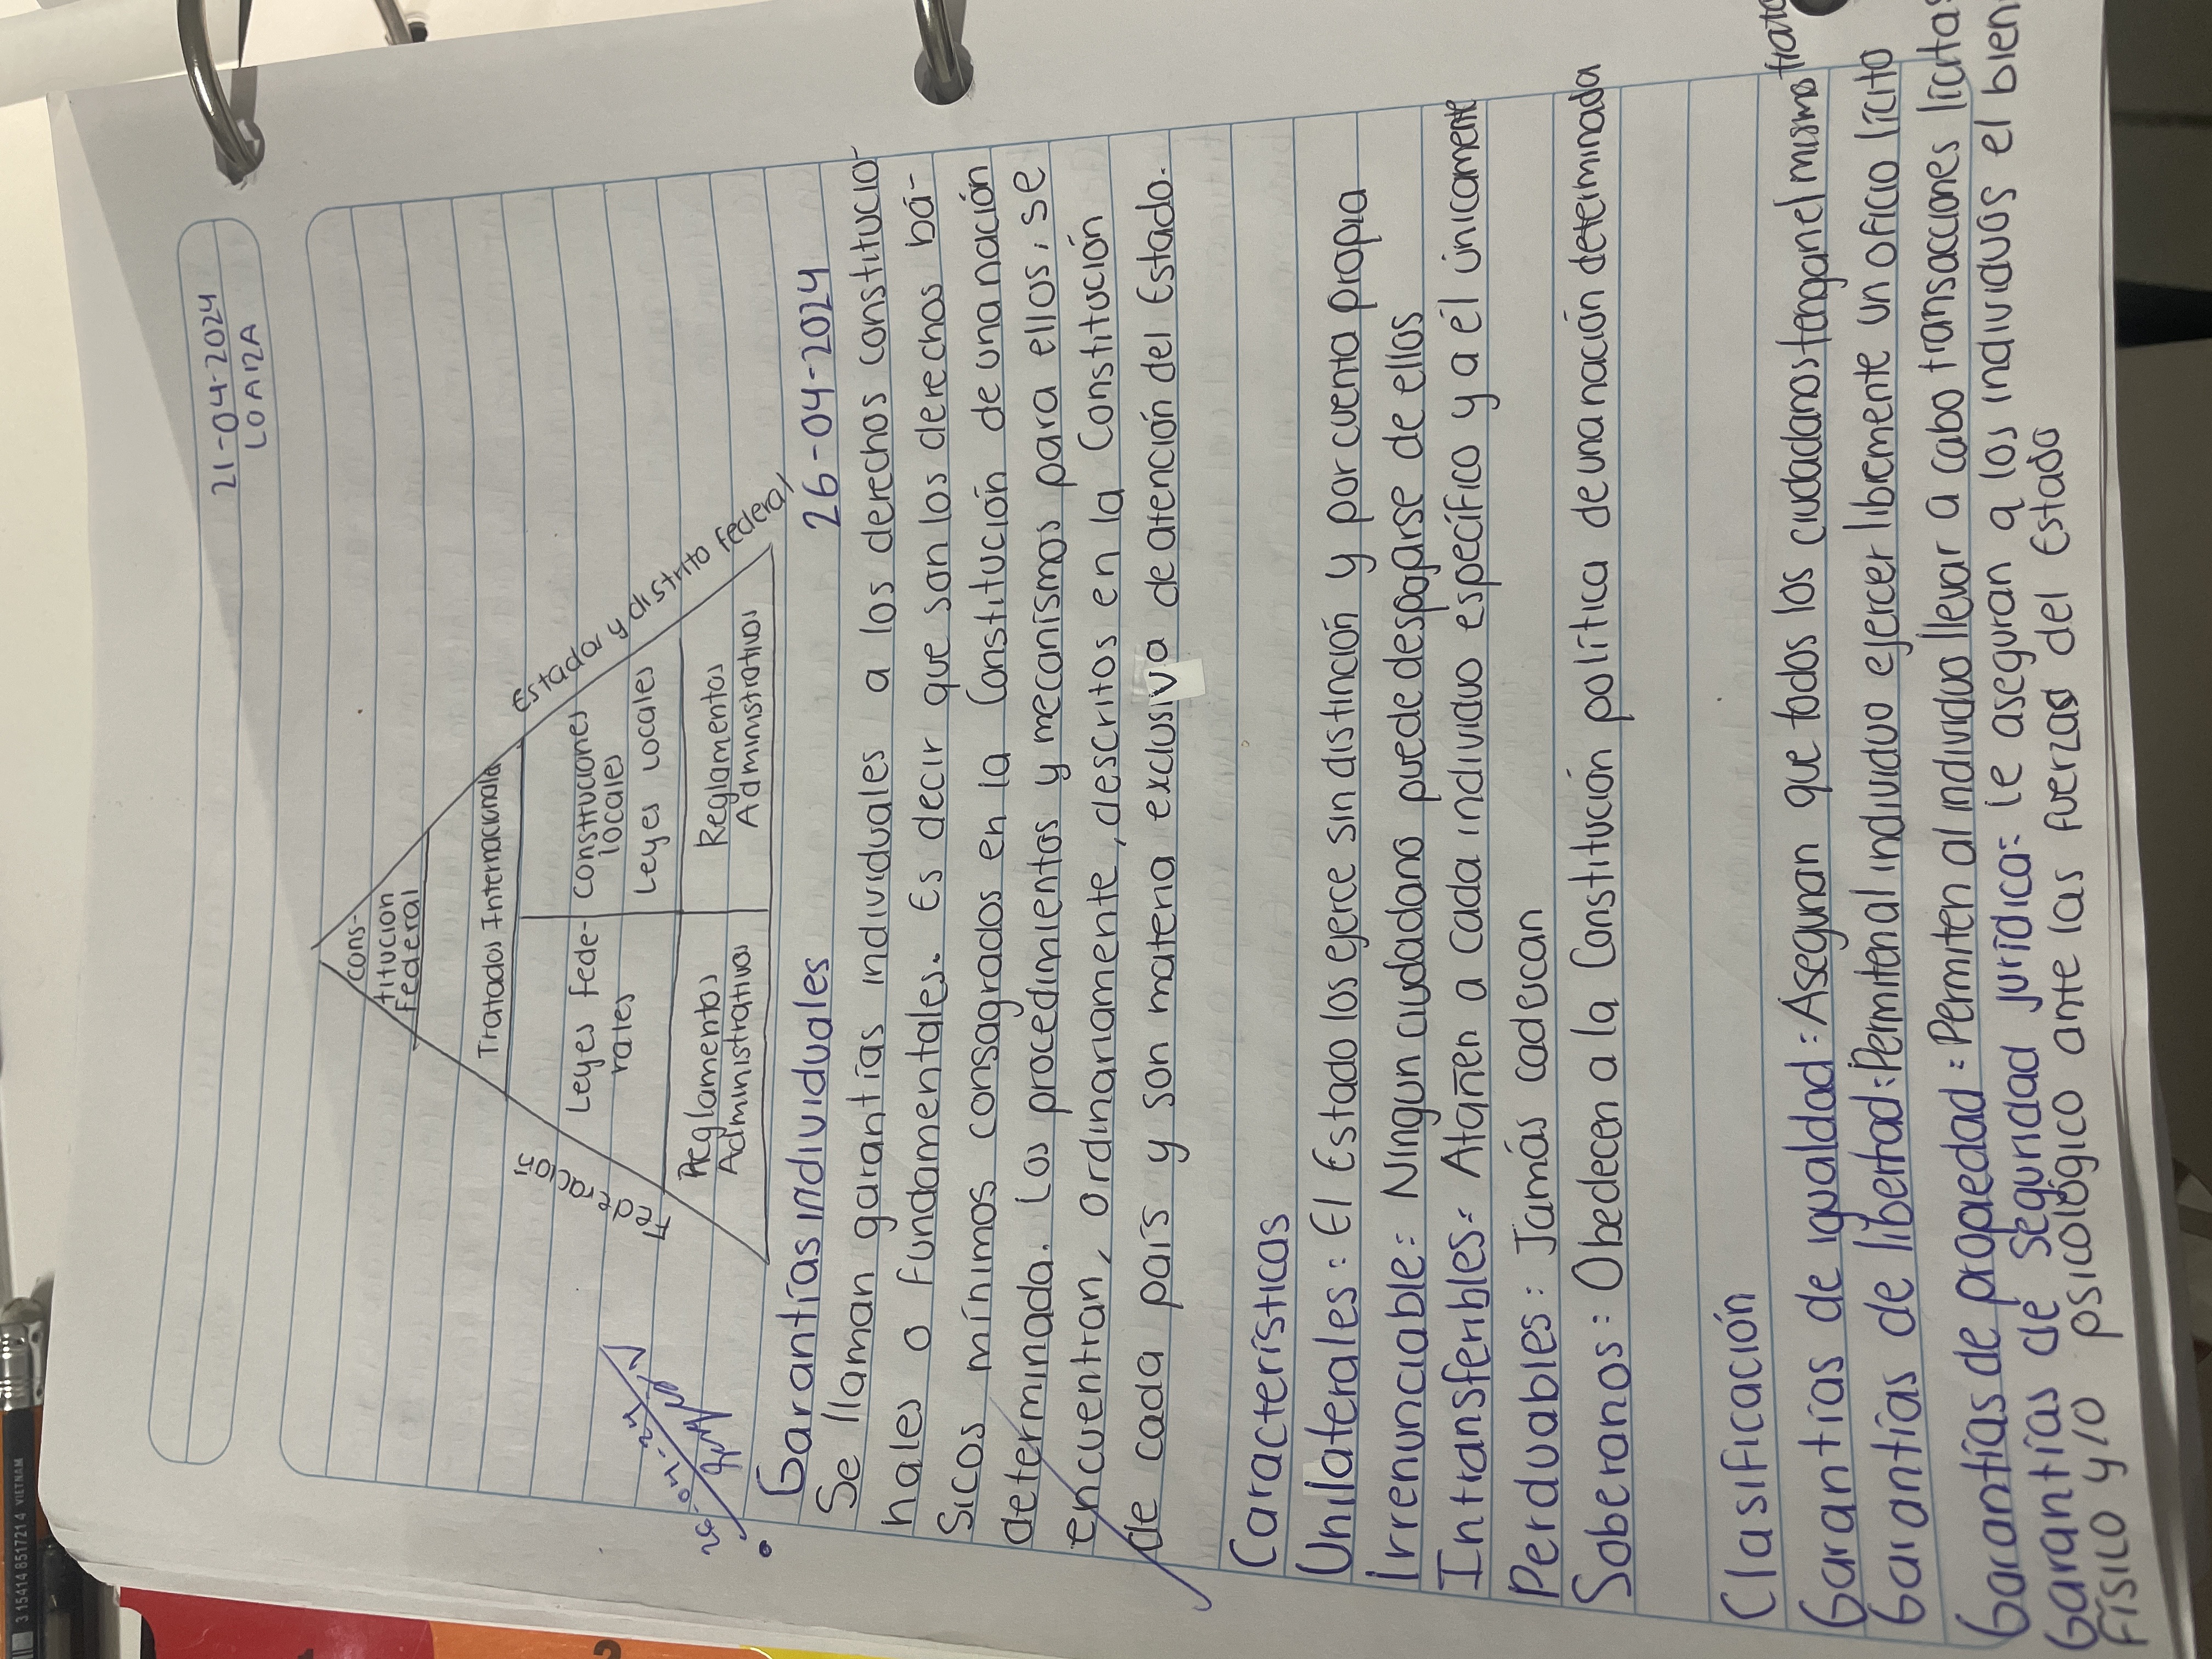 21-04-2024
LOAIZA
Cons-
titucion
Federal
Tratados Internacionales
Estados y distrito Federal
Leyes Fede-
rales
Constituciones
locales
Leyes Locales
Reglamentos
Administrativos
Reglamentos
Administrativos
26-04-24
Garantías individuales 26-04-2024
Se llaman garantías individuales a los derechos constitucio-
nales o fundamentales. Es decir que son los derechos bá-
sicos mínimos consagrados en la Constitución de una nación
determinada. Los procedimientos y mecanismos para ellos, se
encuentran, ordinariamente, descritos en la Constitución
de cada país y son materia exclusiva de atención del Estado.
Características
Unilaterales: El Estado los ejerce sin distinción y por cuenta propia
Irrenunciable: Ningun ciudadano puede despoparse de ellos
Intransferibles: Atañen a cada individuo específico y a él únicamente
Perduables: Jamás caducan
Soberanos: Obedecen a la Constitución política de una nación determinada
Clasificación
Garantías de igualdad: Aseguran que todos los ciudadanos tengan el mismo trato
Garantías de libertad: Permiten al individuo ejercer libremente un oficio lícito
Garantías de propiedad: Permiten al individuo llevar a cabo transacciones lícitas
Garantías de seguridad jurídica: le aseguran a los individuos el bien
Físilo y/o psicológico ante las fuerzas del Estado
3 15414 8517214 VIETNAM
1
2